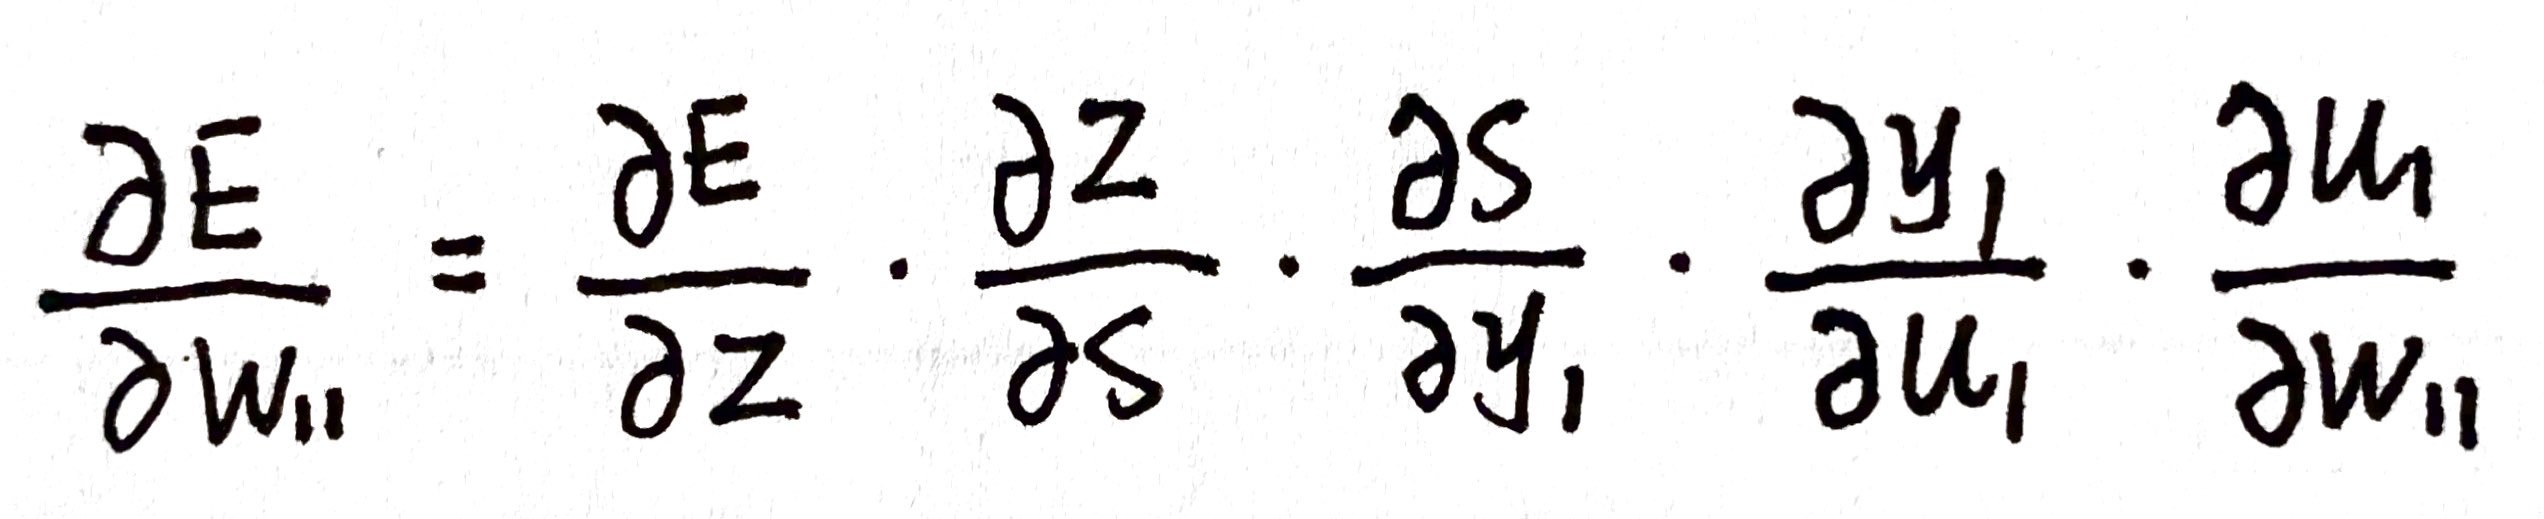 ∂E/∂W₁₁ = ∂E/∂Z · ∂Z/∂S · ∂S/∂y₁ · ∂y₁/∂u₁ · ∂u₁/∂W₁₁